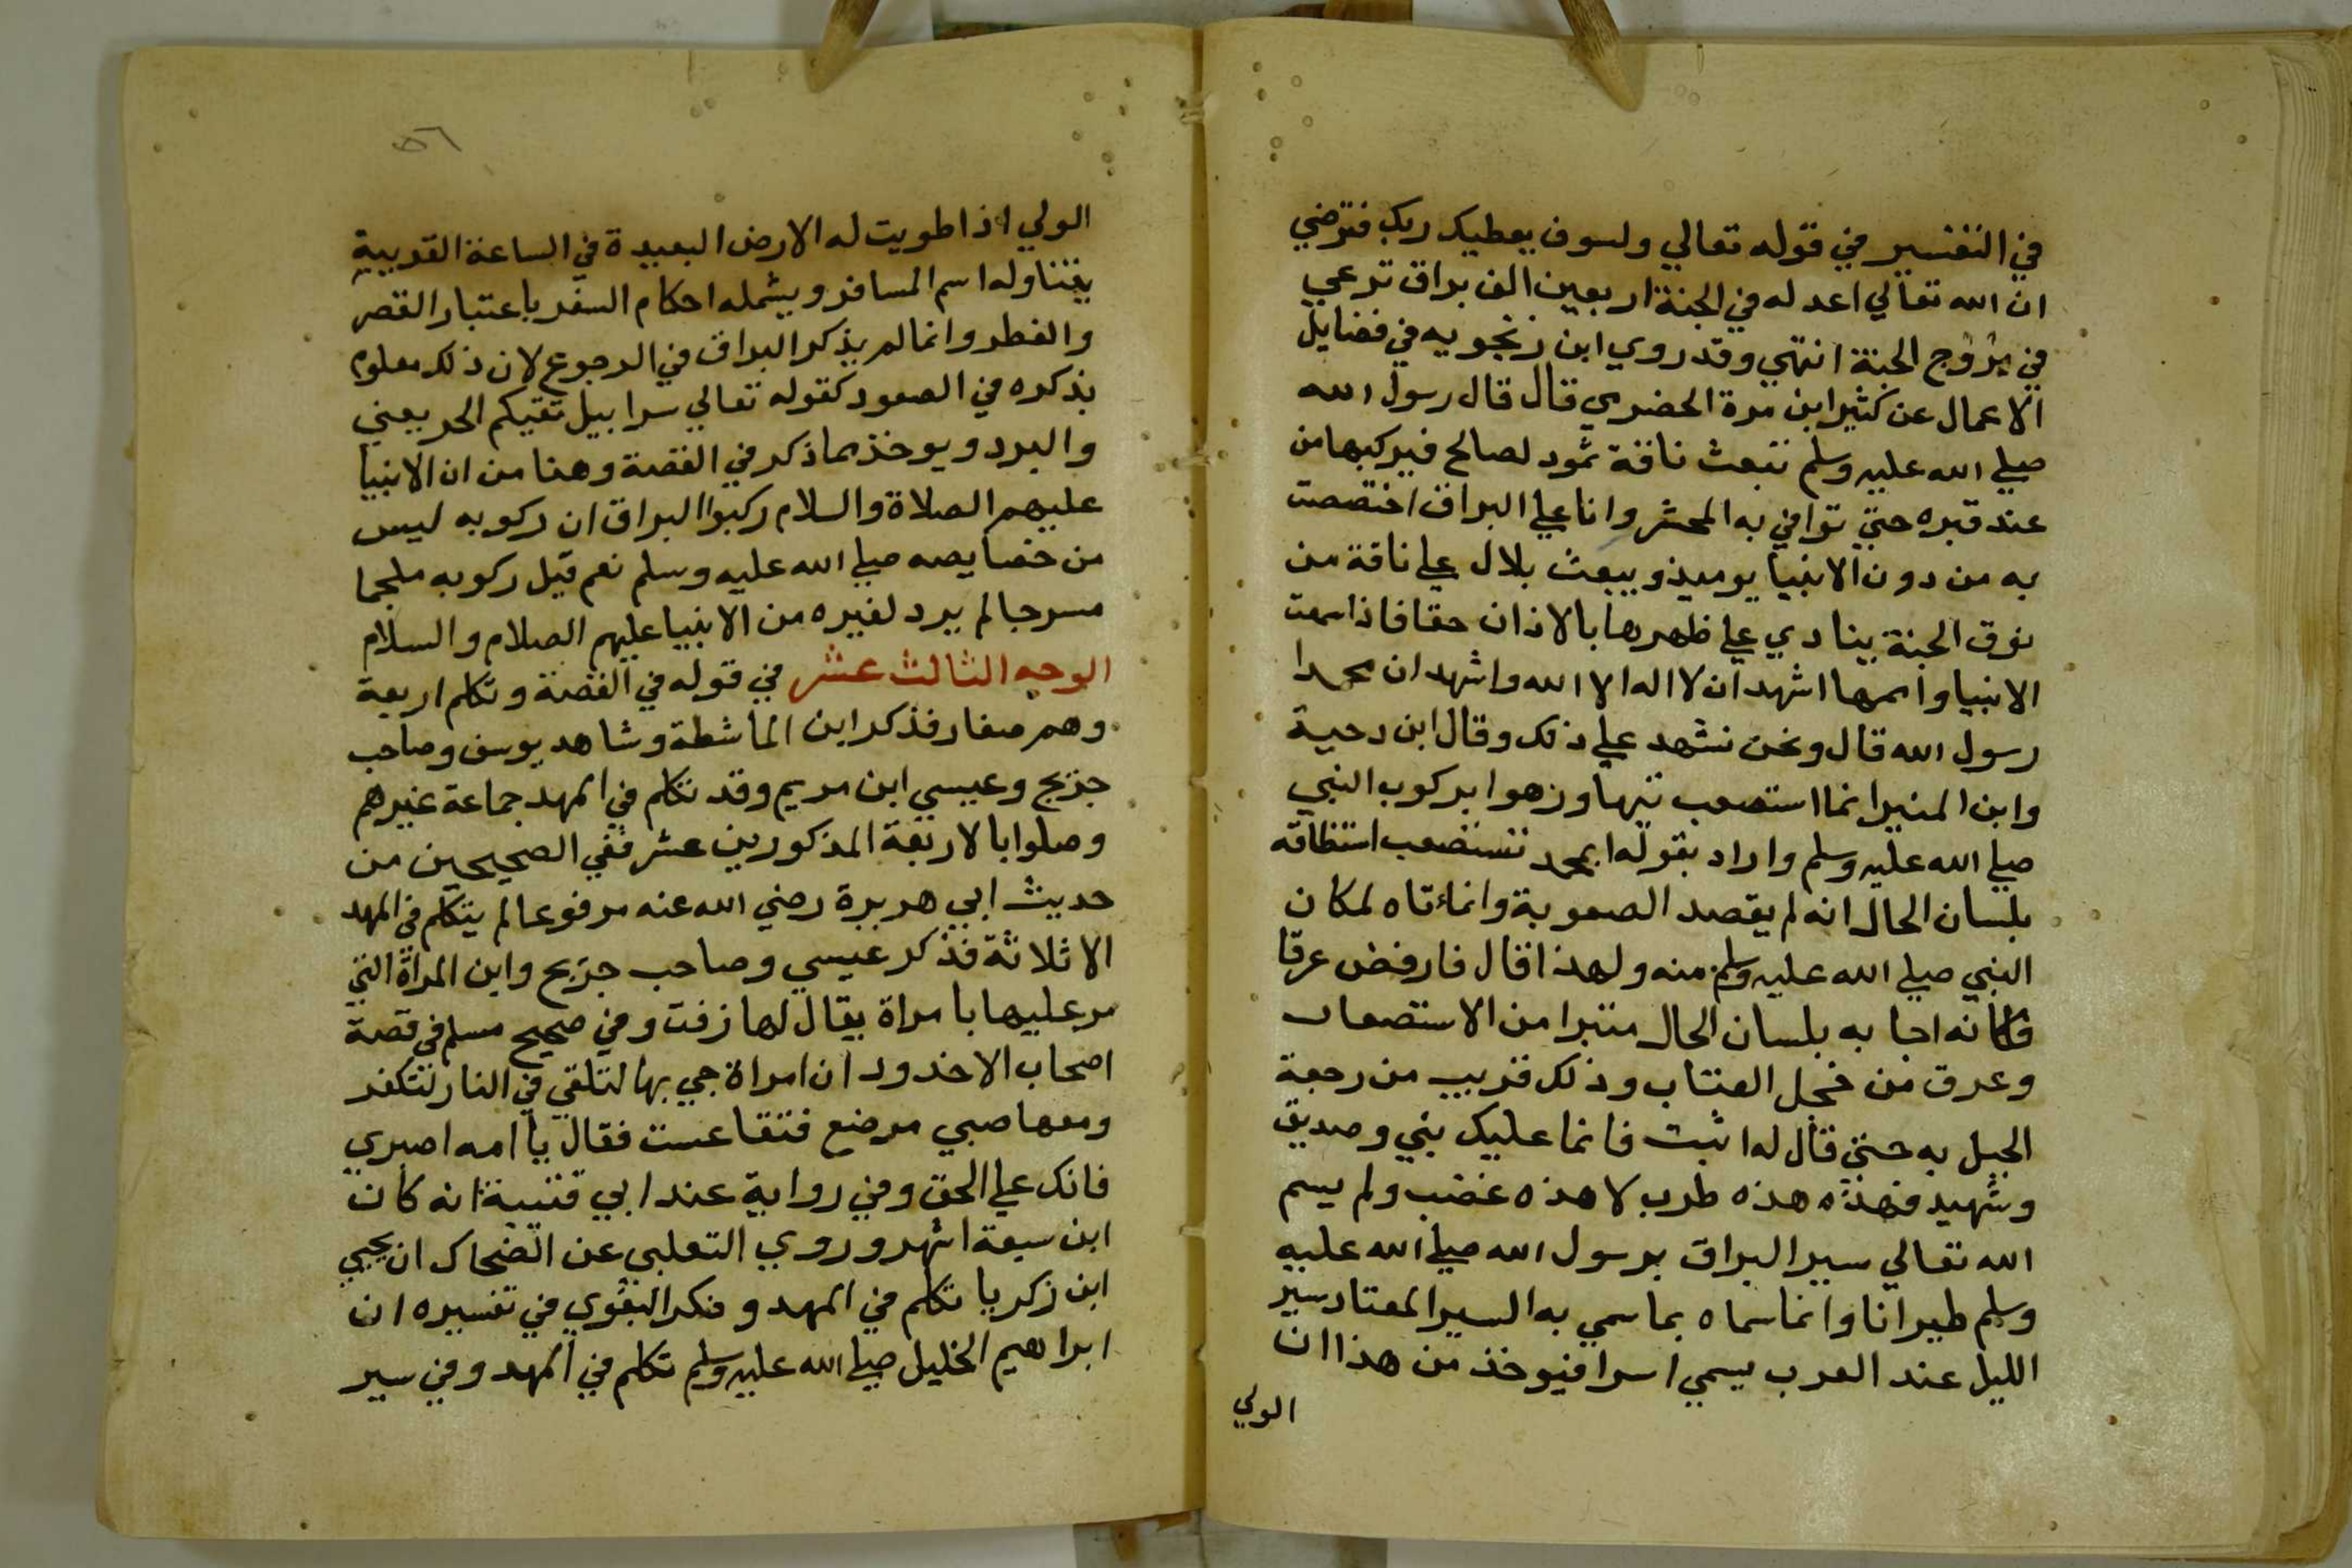 في التفسير في قوله تعالي ولسوف يعطيك ربك فترضي
ان الله تعالي اعد له في الجنة اربعين الف براق ترعي
في مروج الجنة انتهي وقد روي ابن زنجويه في فضايل
الاعمال عن كثير ابن مرة الحضرمي قال قال رسول الله
صلي الله عليه وسلم تبعث ناقة ثمود لصالح فيركبها من
عند قبره حتي توافي به المحشر وانا علي البراق اختصصت
به من دون الانبيا يوميذ ويبعث بلال علي ناقة من
نوق الجنة ينادي علي ظهرها بالاذان حقا فاذا سمعت
الانبيا واممها اشهد ان لا اله الا الله واشهد ان محمدا
رسول الله قال ونحن نشهد علي ذلك وقال ابن دحية
وابن المنير انما استصعب تيها وزهوا بركوب النبي
صلي الله عليه وسلم واراد بقوله ابمحمد تستصعب استنطاقه
بلسان الحال انه لم يقصد الصعوبة وانما تاه لمكان
النبي صلي الله عليه وسلم منه ولهذا قال فارفض عرقا
فكانه اجابه بلسان الحال متبرا من الاستصعاب
وعرق من خجل العتاب وذلك قريب من رجفة
الجبل به حتي قال له اثبت فانما عليك نبي وصديق
وشهيد فهذه هذه طرب لا هذه غضب ولم يسم
الله تعالي سير البراق برسول الله صلي الله عليه
وسلم طيرانا وانما سماه بما سمي به السير المعتاد سير
الليل عند العرب يسمي اسرا فيوخذ من هذا ان
الولي
٥٦
الولي اذا طويت له الارض البعيدة في الساعة القريبة
يتناوله اسم المسافر ويشمله احكام السفر باعتبار القصر
والفطر وانما لم يذكر البراق في الرجوع لان ذلك معلوم
بذكره في الصعود كقوله تعالي سرابيل تقيكم الحر يعني
والبرد ويوخذ مما ذكر في القصة وهنا من ان الانبيا
عليهم الصلاة والسلام ركبوا البراق ان ركوبه ليس
من خصايصه صلي الله عليه وسلم نعم قيل ركوبه ملجما
مسرجا لم يرد لغيره من الانبيا عليهم الصلام والسلام
الوجه الثالث عشر في قوله في القصة وتكلم اربعة
وهم صغار فذكر ابن الماشطة وشاهد يوسف وصاحب
جريج وعيسي ابن مريم وقد تكلم في المهد جماعة غيرهم
وصلوا بالاربعة المذكورين عشر ففي الصحيحين من
حديث ابي هريرة رضي الله عنه مرفوعا لم يتكلم في المهد
الا ثلاثة فذكر عيسي وصاحب جريج وابن المراة التي
مر عليها بامراة يقال لها زفت وفي صحيح مسلم في قصة
اصحاب الاخدود ان امراة جي بها لتلقي في النار لتكفر
ومعها صبي مرضع فتقاعست فقال يا امه اصبري
فانك علي الحق وفي رواية عند ابي قتيبة انه كان
ابن سبعة اشهر وروي الثعلبي عن الضحاك ان يحيي
ابن زكريا تكلم في المهد وذكر البغوي في تفسيره ان
ابراهيم الخليل صلي الله عليه وسلم تكلم في المهد وفي سير